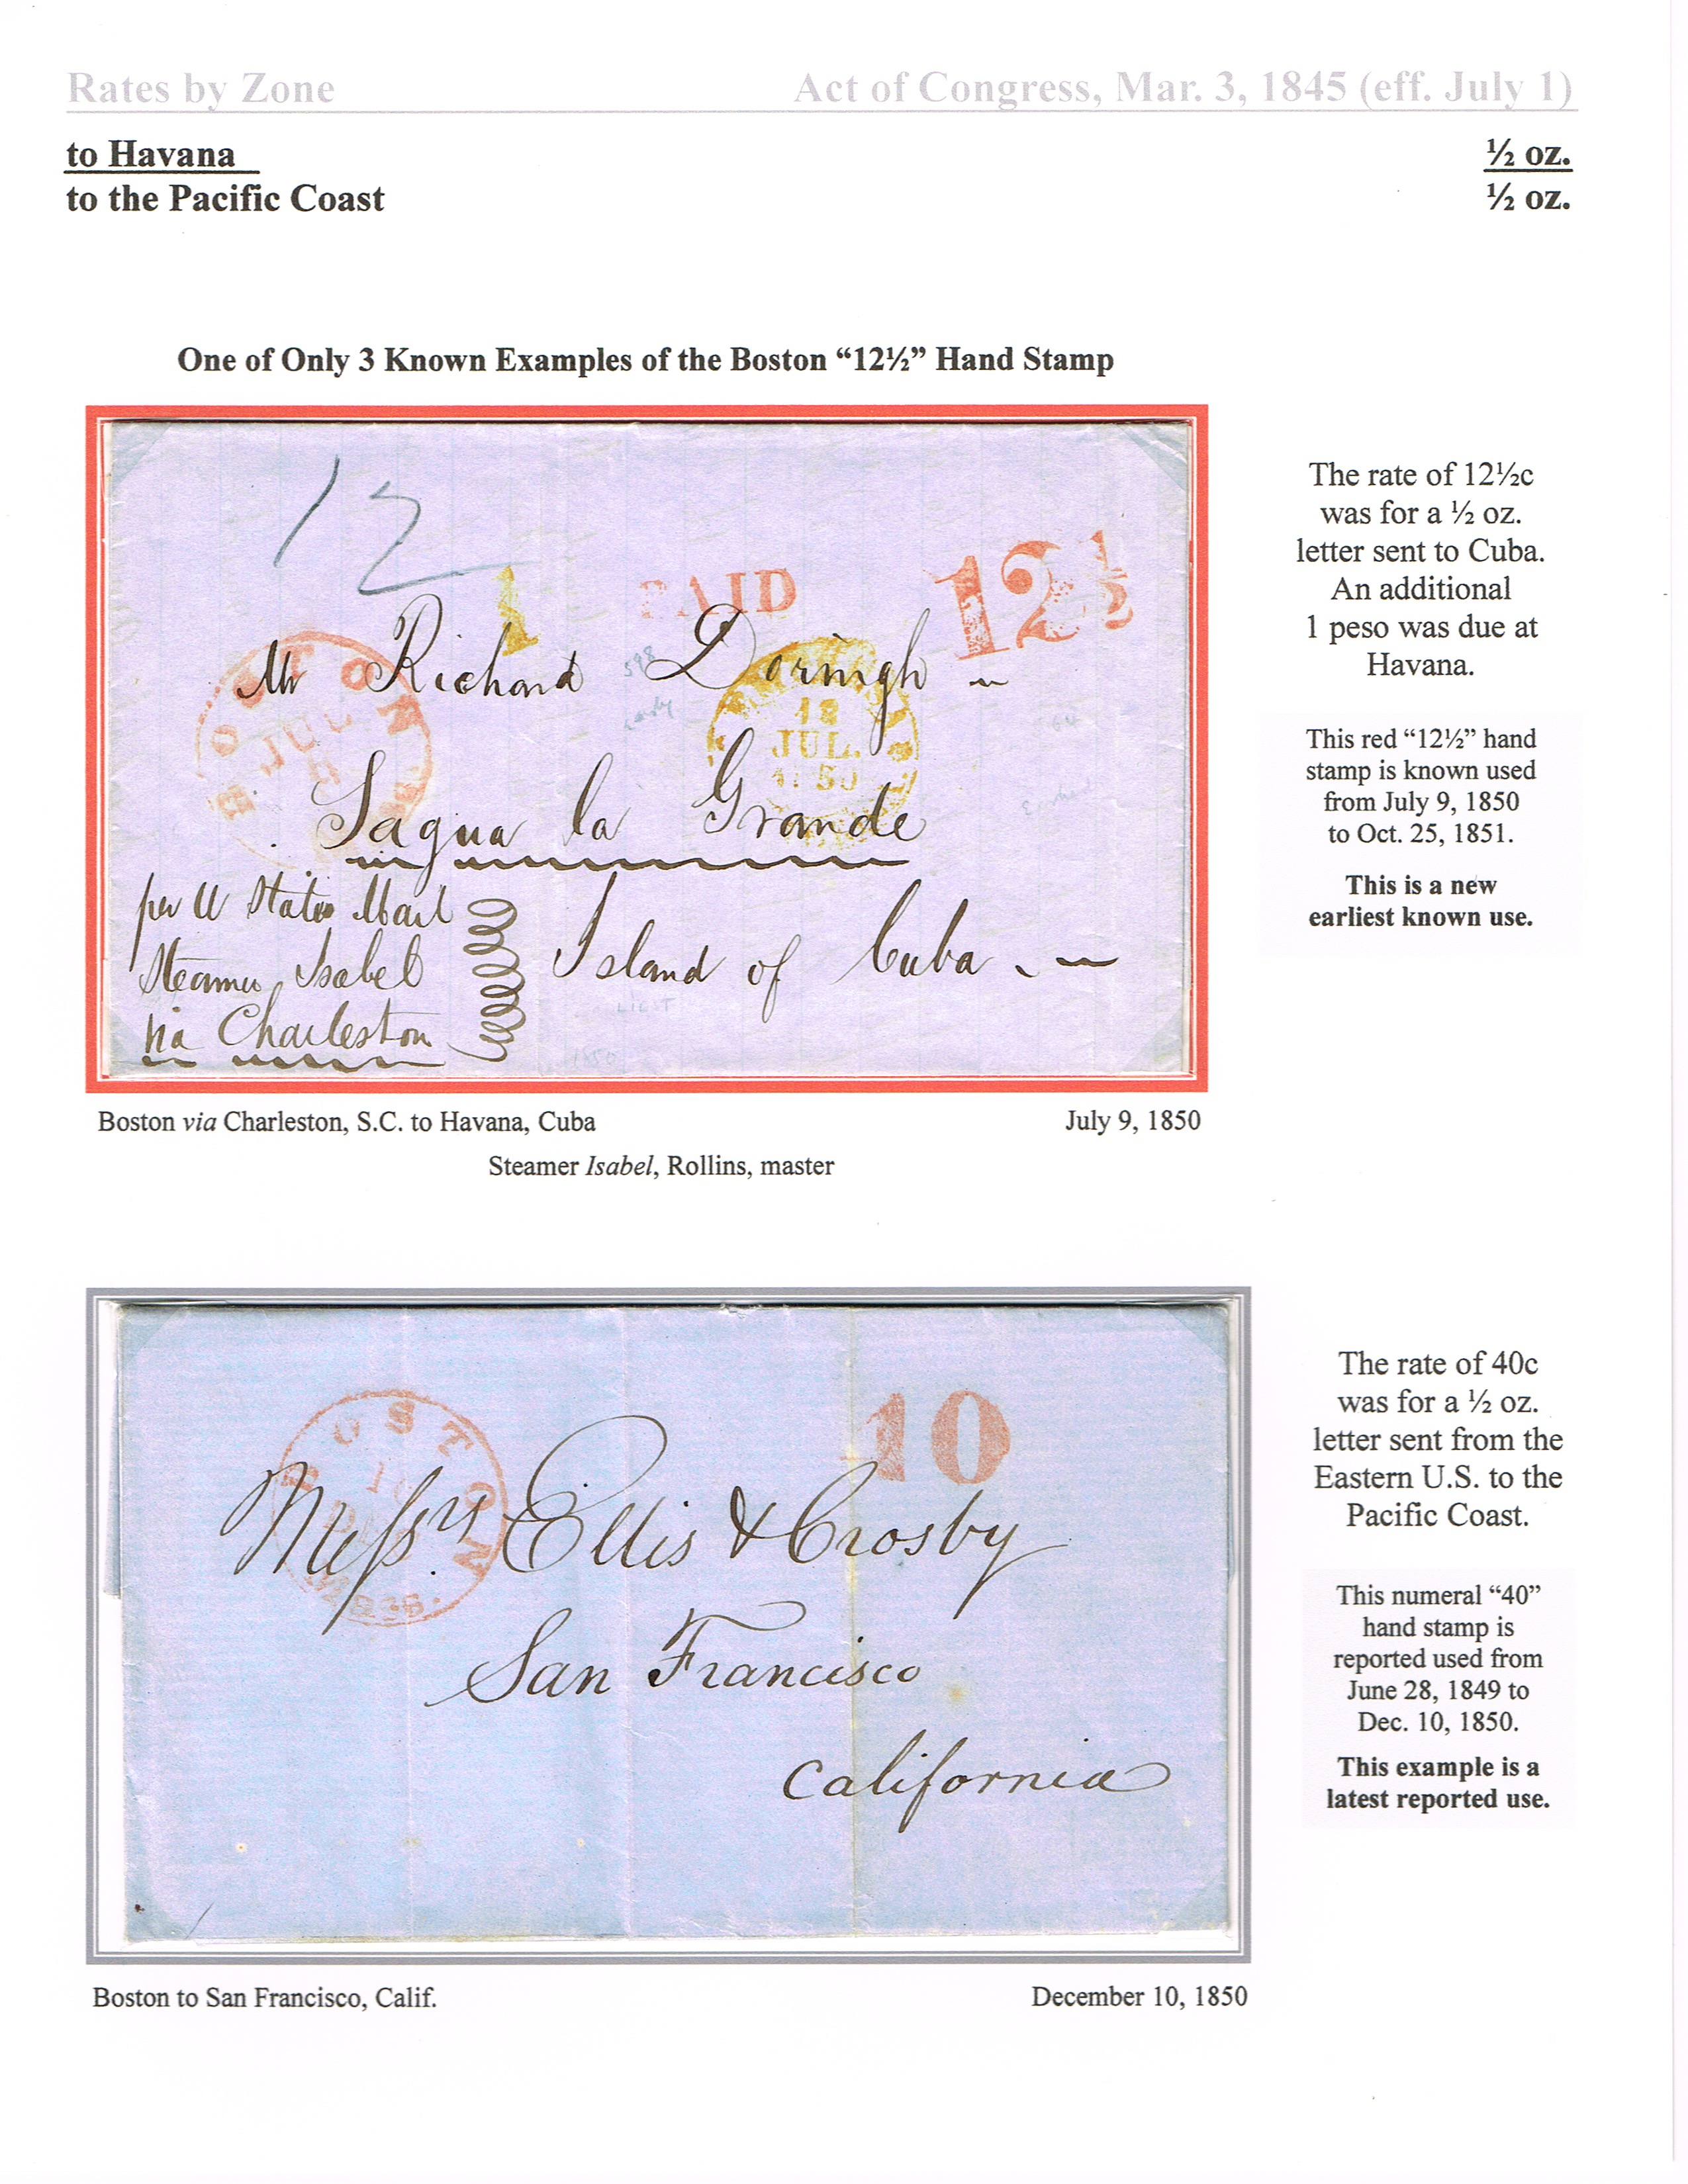 Rates by Zone Act of Congress, Mar. 3, 1845 (eff. July 1)
to Havana ½ oz.
to the Pacific Coast ½ oz.
One of Only 3 Known Examples of the Boston “12½” Hand Stamp
12
1 PAID 12½
BOSTON
JUL
Mr Richard
18
JUL.
1850
Sagua la Grande
per U States Mail
Steamer Isabel
via Charleston
Island of Cuba
The rate of 12½c
was for a ½ oz.
letter sent to Cuba.
An additional
1 peso was due at
Havana.
This red “12½” hand
stamp is known used
from July 9, 1850
to Oct. 25, 1851.
This is a new
earliest known use.
Boston via Charleston, S.C. to Havana, Cuba July 9, 1850
Steamer Isabel, Rollins, master
BOSTON
10
Messrs Ellis & Crosby
San Francisco
California
The rate of 40c
was for a ½ oz.
letter sent from the
Eastern U.S. to the
Pacific Coast.
This numeral “40”
hand stamp is
reported used from
June 28, 1849 to
Dec. 10, 1850.
This example is a
latest reported use.
Boston to San Francisco, Calif. December 10, 1850